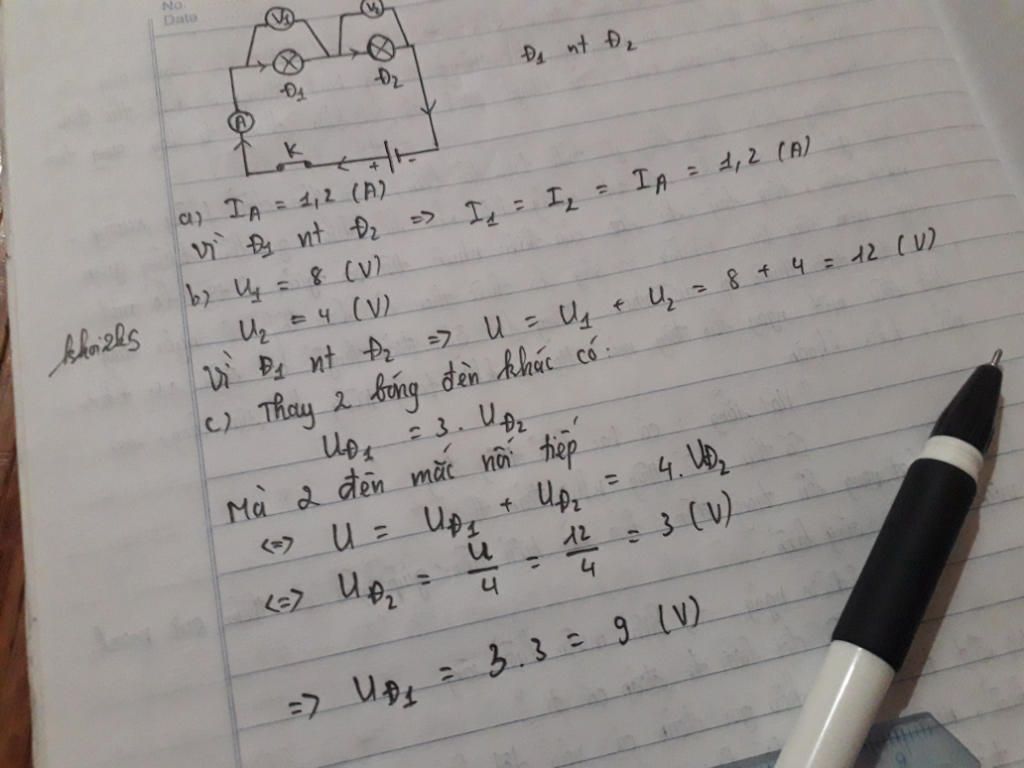 No.
Data
V1
V2
Đ1
Đ2
Đ1 nt Đ2
A
K
+ -
a) IA = 1,2 (A)
Vì Đ1 nt Đ2 => I1 = I2 = IA = 1,2 (A)
b) U1 = 8 (V)
U2 = 4 (V)
Vì Đ1 nt Đ2 => U = U1 + U2 = 8 + 4 = 12 (V)
c) Thay 2 bóng đèn khác có:
UĐ1 = 3. UĐ2
Mà 2 đèn mắc nối tiếp
<=> U = UĐ1 + UĐ2 = 4. UĐ2
<=> UĐ2 = U/4 = 12/4 = 3 (V)
=> UĐ1 = 3.3 = 9 (V)